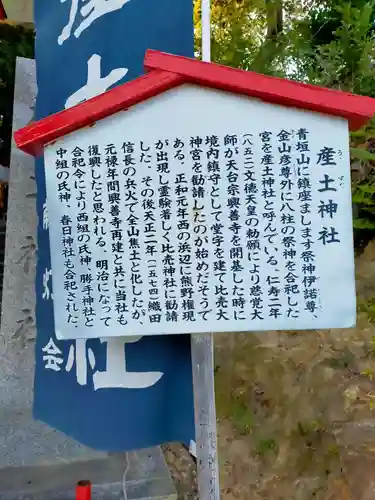 産土神社
うぶすな
青垣山に鎮座まします祭神伊諾尊、
金山彦尊外に八柱の祭神を合祀した
宮を産土神社と呼んでいる。仁寿二年
(八五二)文徳天皇の勅願により慈覚大
師が天台宗興善寺を開基した時に
境内鎮守として堂宇を建て比売大
神宮を勧請したのが始めだそうで
ある。正和元年西の浜辺に熊野権現
が出現し霊験著しく比売神社に勧請
した。その後天正二年(一五七四)織田
信長の兵火で全山焦土と化したが
元禄年間興善寺再建と共に当社も
復興したと思われる。明治になって
合祀令により西組の氏神、勝手神社と
中組の氏神、春日神社も合祀された。
産土
会
社